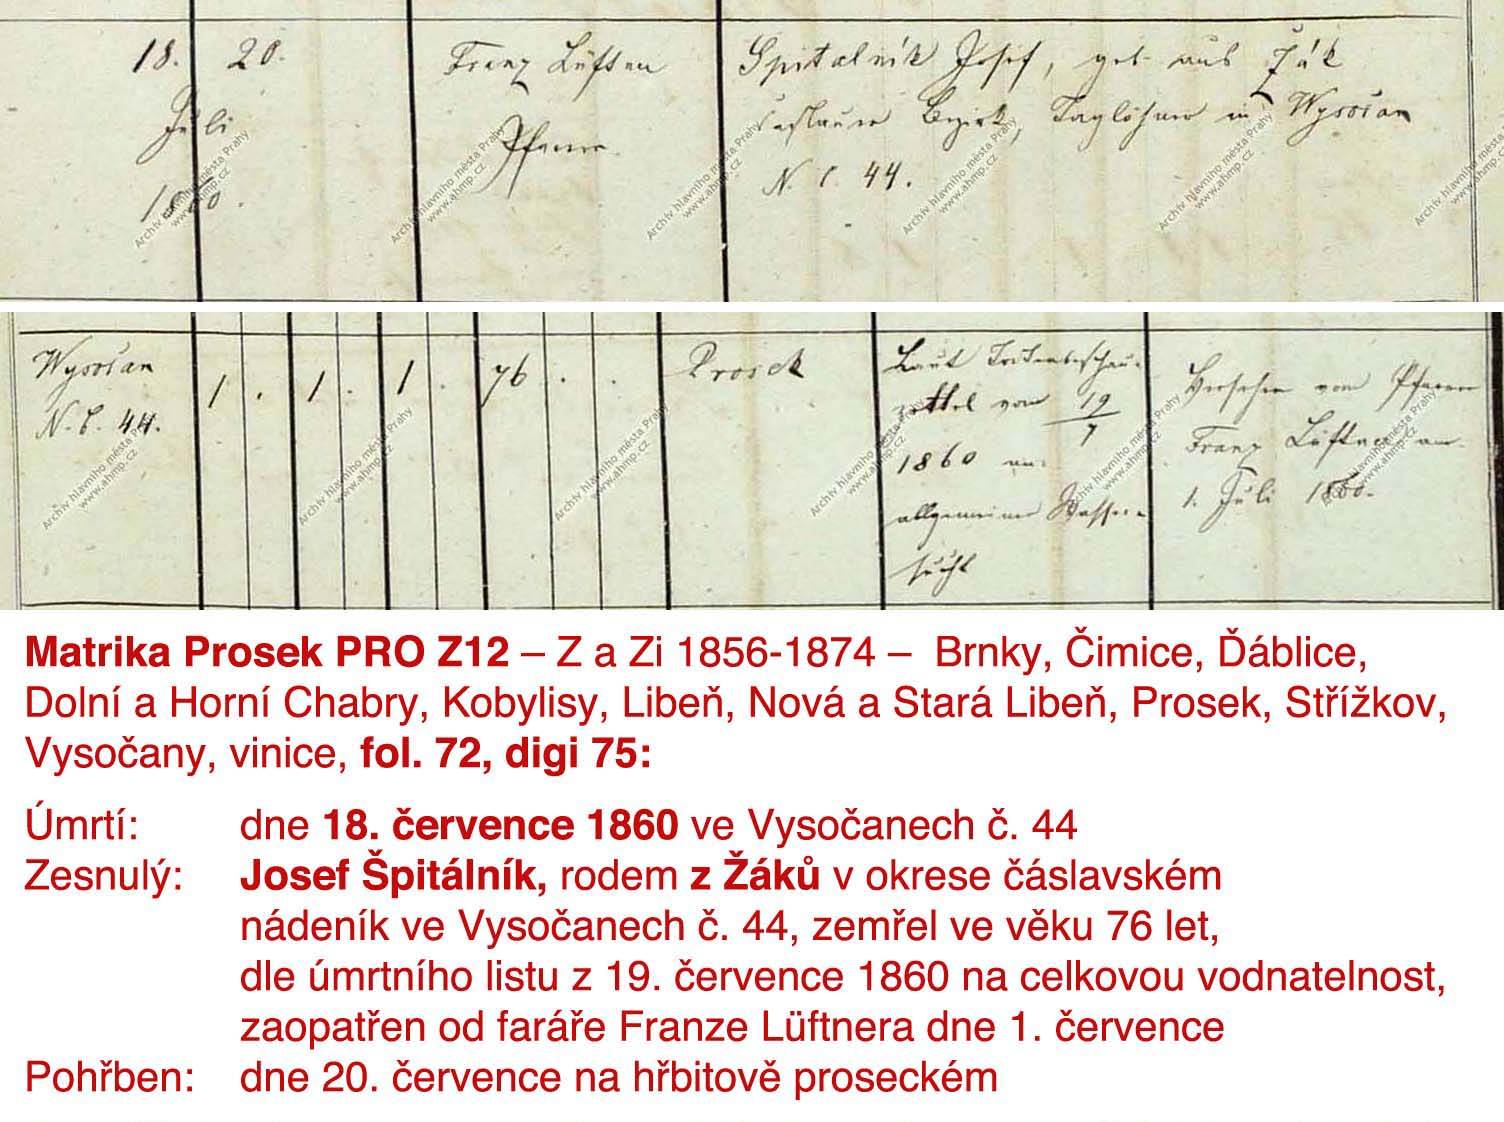 18. 20. Franz Lüftner Spitalník Josef, geb. aus Žák
Juli Pfarrer Časlauer Bezirk, Taglöhner in Wysočan
1860. N. C. 44.
Wysočan 1 . 1 . 1 . 76 . . Prosek Laut Todtenbeschau-
N. C. 44. zettel vom 19/7
1860 an
allgemeiner Wasser-
sucht
Versehen vom Pfarrer
Franz Lüftner am
1. Juli 1860.
Archiv hlavního města Prahy
www.ahmp.cz
Matrika Prosek PRO Z12 – Z a Zi 1856-1874 – Brnky, Čimice, Ďáblice,
Dolní a Horní Chabry, Kobylisy, Libeň, Nová a Stará Libeň, Prosek, Střížkov,
Vysočany, vinice, fol. 72, digi 75:
Úmrtí: dne 18. července 1860 ve Vysočanech č. 44
Zesnulý: Josef Špitálník, rodem z Žáků v okrese čáslavském
nádeník ve Vysočanech č. 44, zemřel ve věku 76 let,
dle úmrtního listu z 19. července 1860 na celkovou vodnatelnost,
zaopatřen od faráře Franze Lüftnera dne 1. července
Pohřben: dne 20. července na hřbitově proseckém